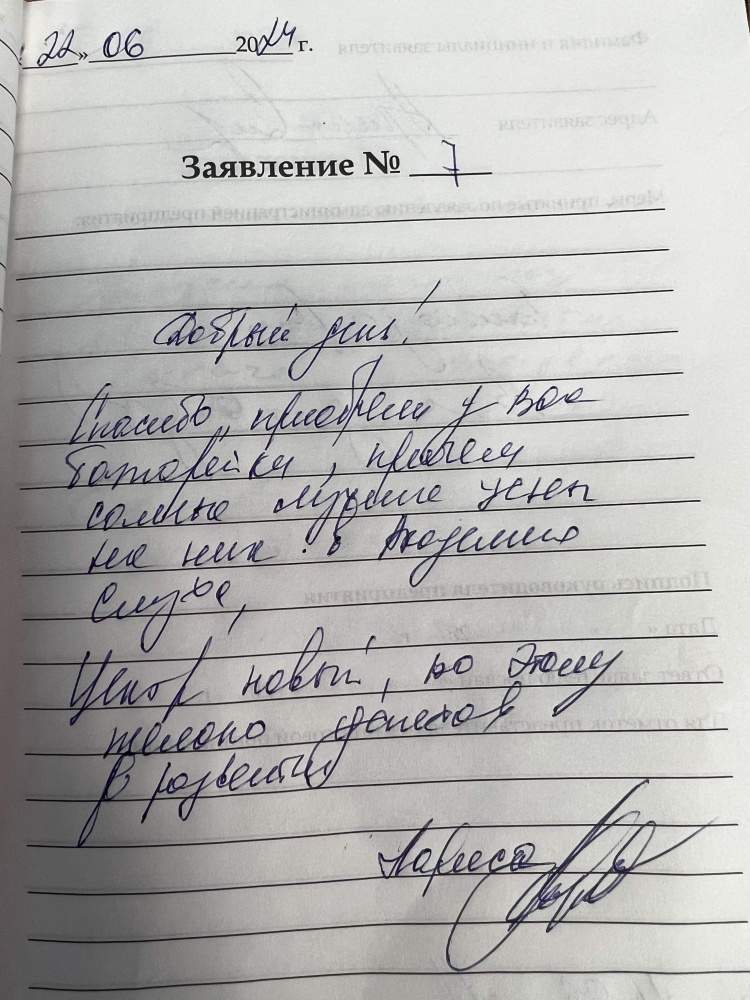 « 22 » 06 2024 г.
Заявление № 7
Добрый день!
Спасибо, приобрели у вас
батарейки, причем
самые лучшие цены
на них в Академии
Слуха,
Центр новый, по этому
желаю успехов
в развитии
Лариса